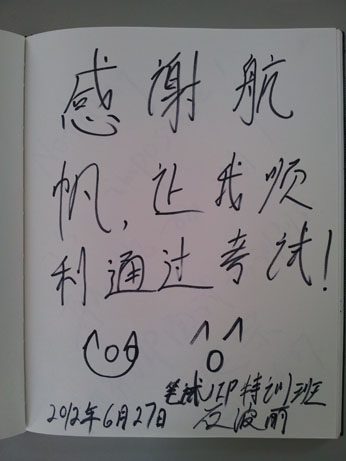 感谢航
帆,让我顺
利通过考试!
笔试JEP特训班
2012年6月27日 石波丽